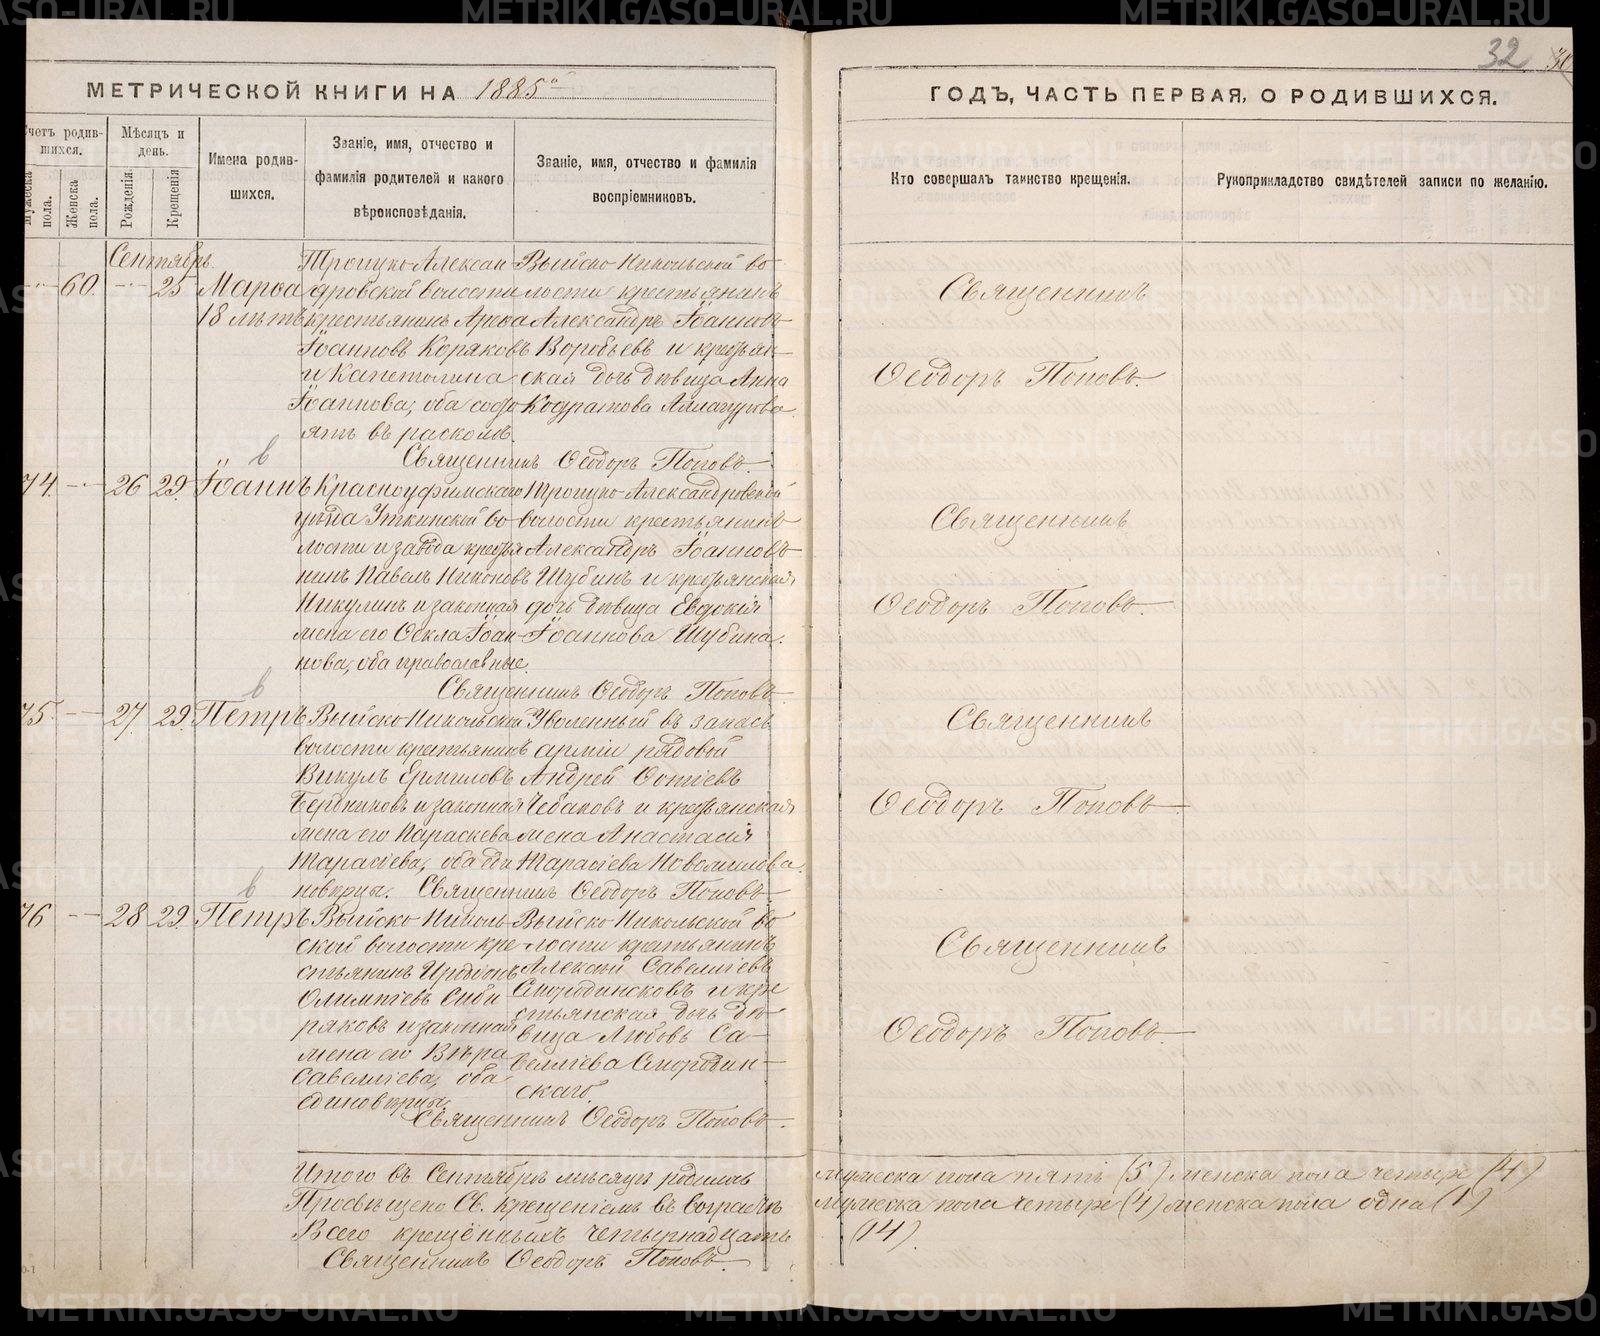 32
МЕТРИЧЕСКОЙ КНИГИ НА 1885й
ГОДЪ, ЧАСТЬ ПЕРВАЯ, О РОДИВШИХСЯ.
Счетъ родив-
шихся.
Мужеска пола.
Женска пола.
Мѣсяцъ и
день.
Рожденія.
Крещенія
Имена родив-
шихся.
Званіе, имя, отчество и
фамилія родителей и какого
вѣроисповѣданія.
Званіе, имя, отчество и фамилія
воспріемниковъ.
Кто совершалъ таинство крещенія.
Рукоприкладство свидѣтелей записи по желанію.
Сентябрь.
60. 25 Марѳа
18 лѣтъ
Троицко-Алексан
дровской волости
крестьянинъ Ареѳа
Іоанновъ Коряковъ
и Капетолина
Іоаннова, оба состо
ятъ въ расколѣ.
Выйско-Никольской во
лости крестьянинъ
Александръ Іоанновъ
Воробьевъ и крестьян
ская дочь дѣвица Анна
Кодратова
Священникъ Ѳеодоръ Поповъ.
Священникъ
Ѳеодоръ Поповъ.
74. 26 29. Іоаннъ
Красноуфимскаго
уѣзда Уткинской во
лости и завода крестья
нинъ Павелъ Никоновъ
Никулинъ и законная
жена его Ѳекла Іоан
нова, оба православные.
Троицко-Александровской
волости крестьянинъ
Александръ Іоанновъ
Шубинъ и крестьянская
дочь дѣвица Евдокія
Іоаннова Шубина.
Священникъ Ѳеодоръ Поповъ
Священникъ
Ѳеодоръ Поповъ.
75. 27. 29. Петръ
Выйско-Никольской
волости крестьянинъ
Викулъ Ермиловъ
Бердниковъ и законная
жена его Параскева
Тарасіева, оба еди
новѣрцы.
Уволенный въ запасъ
арміи рядовой
Андрей Фотіевъ
Чебаковъ и крестьянская
жена Анастасія
Тарасіева Новожилова.
Священникъ Ѳеодоръ Поповъ
Священникъ
Ѳеодоръ Поповъ
76 28 29. Петръ
Выйско-Николь
ской волости кре
стьянинъ Иродіонъ
Олимпіевъ Сиби
ряковъ и законная
жена его Вѣра
Савеліева, оба
единовѣрцы.
Выйско-Никольской во
лости крестьянинъ
Алексѣй Савеліевъ
Смородинсковъ и кре
стьянская дочь дѣ
вица Любовь Са
веліева Смородин
скаго.
Священникъ Ѳеодоръ Поповъ
Священникъ
Ѳеодоръ Поповъ.
Итого въ Сентябрѣ мѣсяцѣ родилось мужеска пола пять (5) женска пола четыре (4)
Просвѣщено Св. Крещеніемъ въ возрастѣ мужеска пола четыре (4) женска пола одна (1)
Всего крещённыхъ четырнадцать (14).
Священникъ Ѳеодоръ Поповъ
METRIKI.GASO-URAL.RU